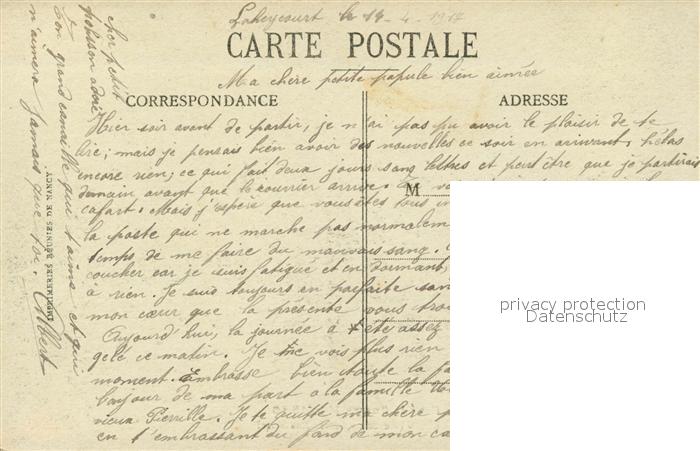 Laheycourt le 14-4-1917
CARTE POSTALE
Ma chère petite papule bien aimée
CORRESPONDANCE
ADRESSE
Hier soir avant de partir, je n'ai pas pu avoir le plaisir de te
lire; mais je pensais bien avoir des nouvelles ce soir en arrivant, hélas
encore rien; ce qui fait deux jours sans lettres et peut être que je partirais
demain avant que le courrier arrive.
M
cafart. Mais j'espère que vous êtes tous
la poste qui ne marche pas normalem
temps de me faire du mauvais sang.
coucher car je suis fatigué et en dormant,
à rien. Je suis toujours en parfaite san
mon cœur que la présente vous trou
Aujourd'hui, la journée à été assez
gelé ce matin. Je ne vois plus rien
moment. Embrasse bien toute la fa
bonjour de ma part à la famille
vieux Pierville. Je te quitte ma chère p
en t'embrassant du fond de mon cœ
cher petit
poisson adoré
Ton grand canaille qui t'aime et qui
n'aimera jamais que toi. Albert
IMPRIMERIES REUNIES DE NANCY
privacy protection
Datenschutz